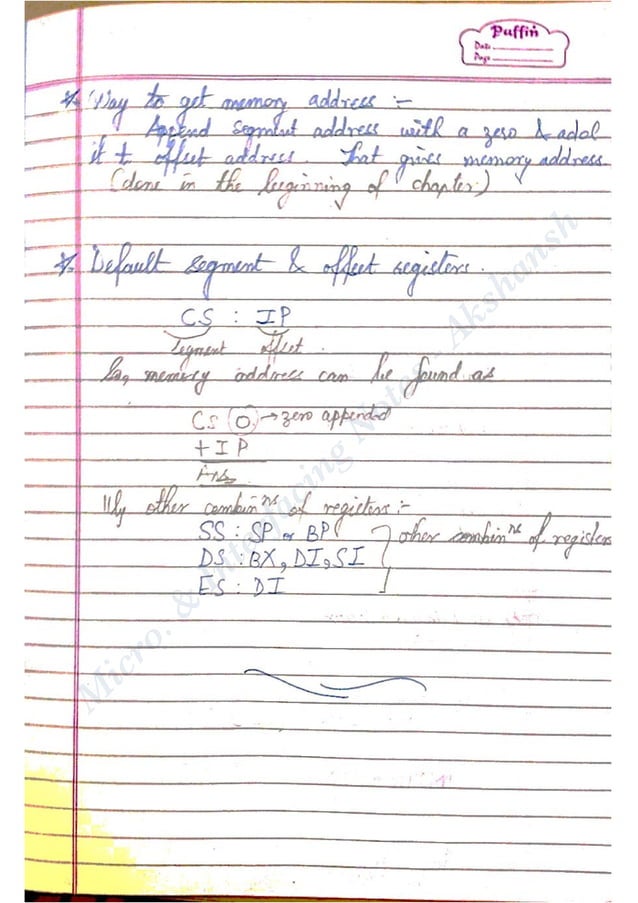 Puffin
Date
Page
Way to get memory address :-
Append segment address with a zero & add
it to offset address. That gives memory address
(done in the beginning of chapter)
Default segment & offset registers.
CS : IP
segment offset.
So, memory address can be found as
CS 0 → zero appended
+ I P
Ans
llly other combinns of registers :-
SS : SP or BP
DS : BX, DI, SI
ES : DI
other combinns of registers
Micro. & Interfacing Notes - Akshansh